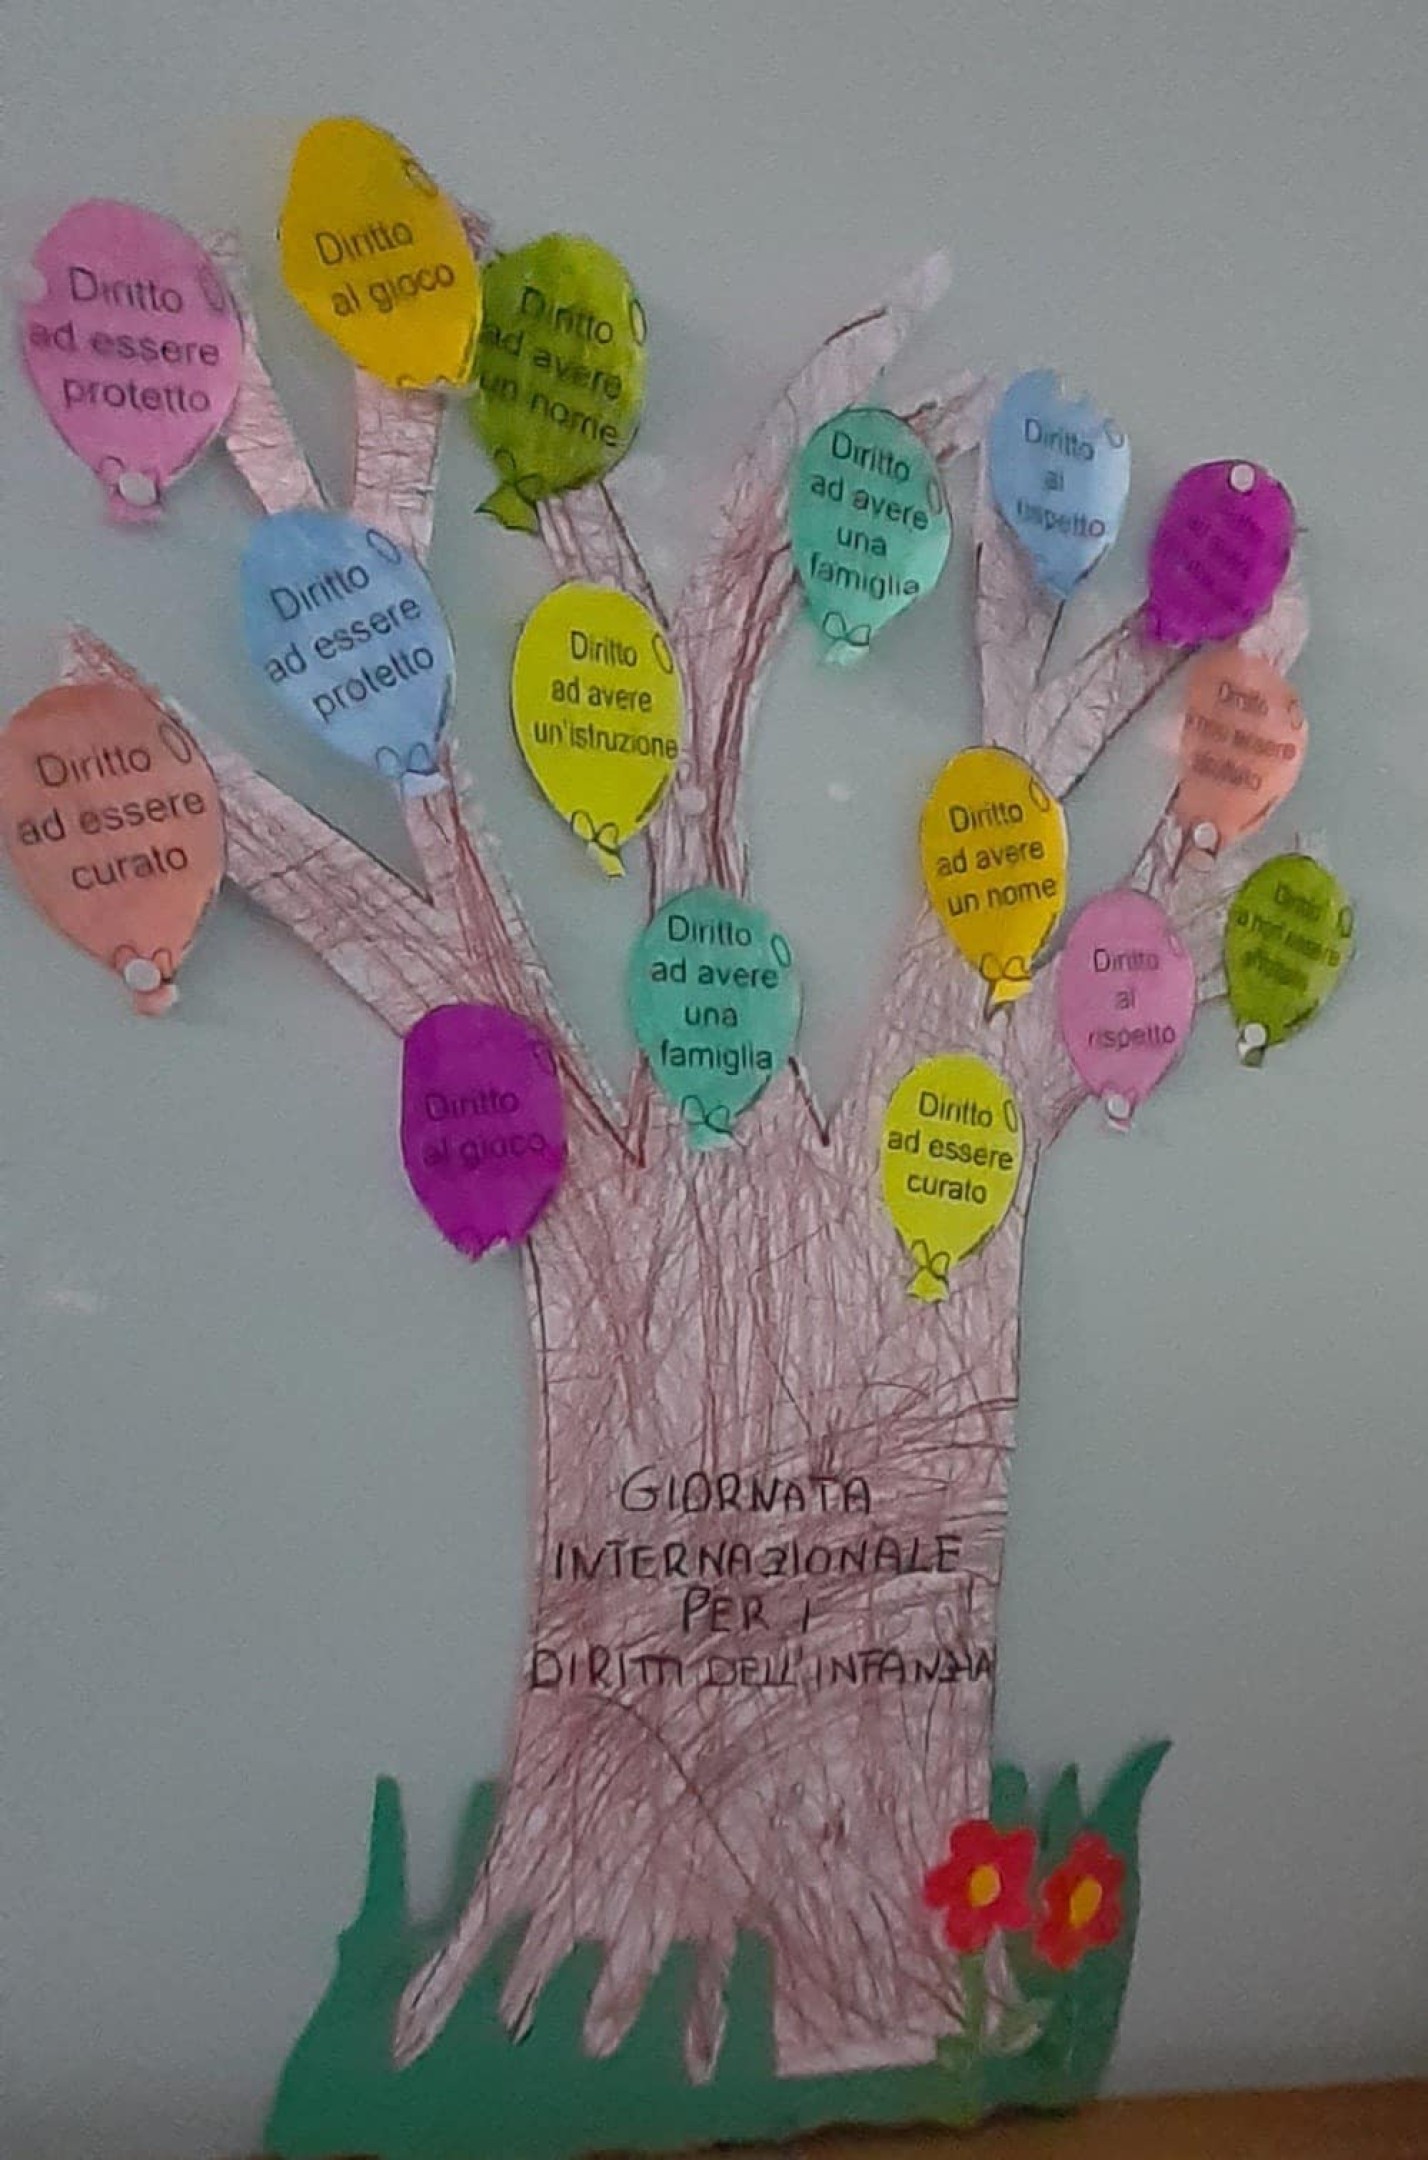 Diritto
al gioco
Diritto
ad essere
protetto
Diritto
ad avere
un nome
Diritto
ad avere
una
famiglia
Diritto
al
rispetto
Diritto
ad essere
protetto
Diritto
ad avere
un'istruzione
Diritto
ad essere
curato
Diritto
Diritto
ad avere
un nome
Diritto
Diritto
ad avere
una
famiglia
Diritto
al
rispetto
Diritto
al gioco
Diritto
ad essere
curato
GIORNATA
INTERNAZIONALE
PER I
DIRITTI DELL'INFANZIA